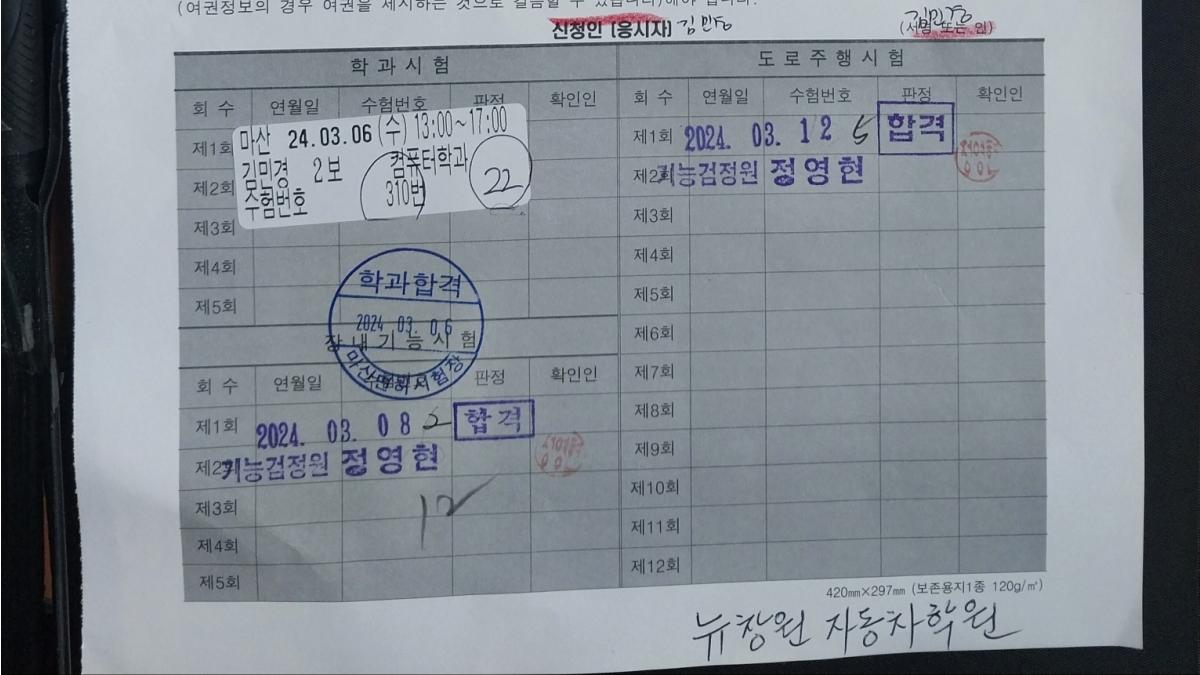 (여권정보의 경우 여권을 제시하는 것으로 갈음할 수 있습니다)해야 합니다.
신청인 [응시자] 김민경
김민경
(서명 또는 인)
학과시험
회 수 연월일 수험번호 판정 확인인
제1회
마산 24.03.06 (수) 13:00~17:00
김민경 2보 컴퓨터학과
수험번호 310번 22
제2회
제3회
제4회
제5회
학과합격
2024 03. 06
마산면허시험장
장내기능시험
회 수 연월일 수험번호 판정 확인인
제1회 2024. 03. 08 2 합격
제2회 기능검정원 정영현
제3회 12
제4회
제5회
도로주행시험
회 수 연월일 수험번호 판정 확인인
제1회 2024. 03. 12 5 합격
제2회 기능검정원 정영현
제3회
제4회
제5회
제6회
제7회
제8회
제9회
제10회
제11회
제12회
420㎜×297㎜ (보존용지1종 120g/㎡)
뉴창원 자동차학원